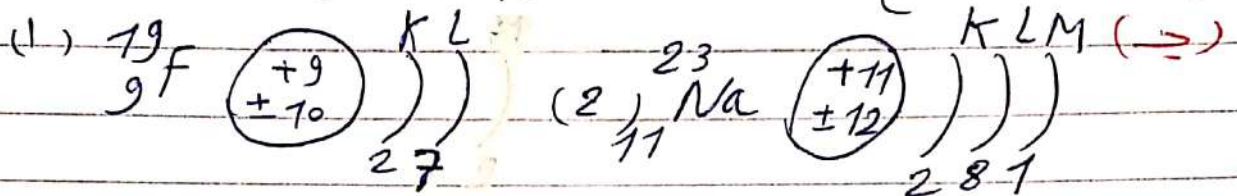 (1) 19 9 F +9 ±10 K L 2 7 (2) 23 11 Na +11 ±12 K L M 2 8 1